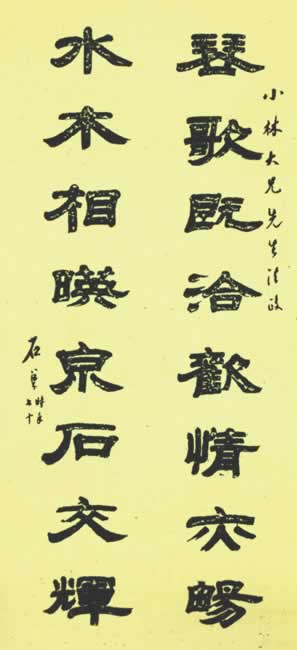 小林大兄先生法政
琴歌既洽歡情亦暢
水木相暎泉石交輝
石
時年
十